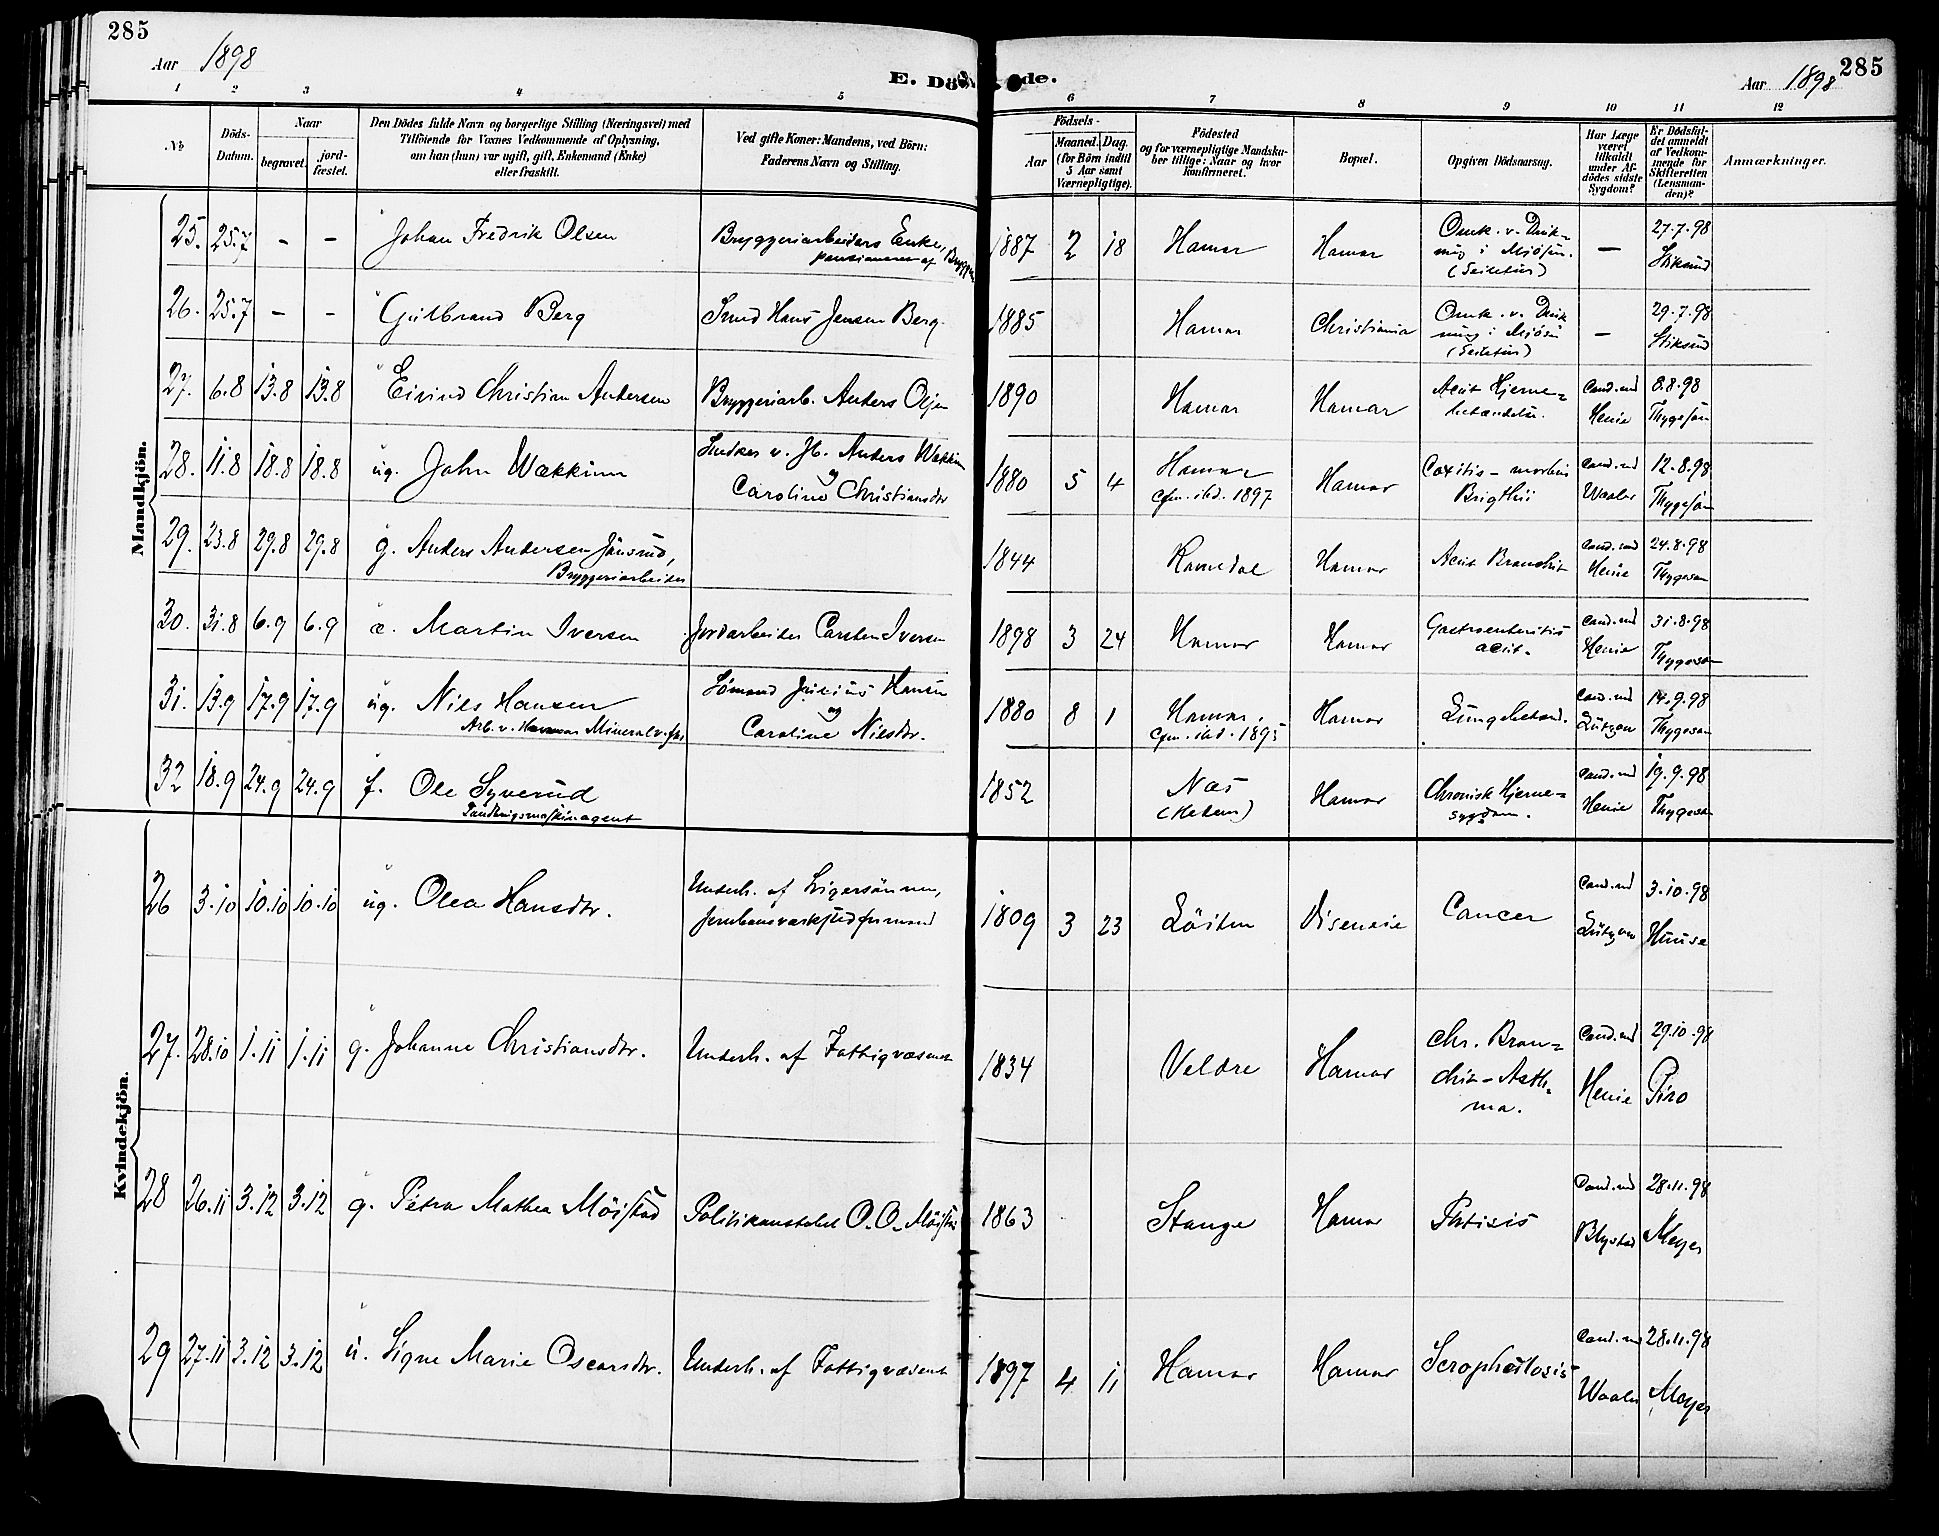 285
Aar 1898
E. Döde.
Aar 1898
285
1 2 3 4 5 6 7 8 9 10 11 12
No
Döds-Datum.
Naar
begravet.
jord-fæstet.
Den Dödes fulde Navn og borgerlige Stilling (Næringsvei) med
Tilföiende for Voxnes Vedkommende af Oplysning,
om han (hun) var ugift, gift, Enkemand (Enke)
eller fraskilt.
Ved gifte Koner: Mandens, ved Börn:
Faderens Navn og Stilling.
Födsels-
Aar
Maaned. Dag.
(for Börn indtil
5 Aar samt
Værnepligtige).
Födested
og for værnepligtige Mandskaber
tillige: Naar og hvor
konfirmeret.
Bopæl.
Opgiven Dödsaarsag.
Har Læge
været
tilkaldt
under Af-
dödes sidste
Sygdom?
Er Dödsfal-
det anmeldt
af Vedkom-
mende for
Skifteretten
(Lensman-
den)?
Anmærkninger.
Mandkjön.
25. 25.7 - - Johan Fredrik Olsen Bryggeriarbeiders Enke, 1887 2 18 Hamar Hamar Omk. v. Druk-
ning i Mjösen. (Seiletur) — 27.7.98
26. 25.7 - - Gulbrand Berg Smed Hans Jensen Berg. 1885 Hamar Christiania Omk. v. Druk
ning i Mjösen (Seiletur) — 29.7.98
27. 6.8 13.8 13.8 Eivind Christian Andersen Bryggeriarb. Anders Olsen 1890 Hamar Hamar Acut Hjerne-
betændelse. Cand. md Henie 8.8.98 Thygeson
28. 11.8 18.8 18.8 ug. John Wækkinn Snedker v. Jb. Anders Wækkin
og Caroline Christiansdtr 1880 5 4 Hamar
Cfm. ibd. 1897 Hamar Coxitis - morbus
Brigthii Cand. md Waaler 12.8.98 Thygeson
29. 23.8 29.8 29.8 g. Anders Andersen Jönsrud,
Bryggeriarbeider 1844 Romedal Hamar Acut Bronchit Cand. md Henie 24.8.98 Thygeson
30. 31.8 6.9 6.9 æ. Martin Iversen Jordarbeider Carsten Iversen 1898 3 24 Hamar Hamar Gastroenteritis
acut. Cand. md Henie 31.8.98 Thygeson
31. 13.9 17.9 17.9 ug. Nils Hansen
Arb. v. Hamar Mineralv.fbr. Sömand Julius Hansen
og Caroline Nilsdtr. 1880 8 1 Hamar.
Cfm. ibd. 1895 Hamar Lungebetænd. Cand. md Lützow 14.9.98 Thygeson
32 18.9 24.9 24.9 f. Ole Syverud 1852 Næs
Hamar Chronisk Hjerne-
sygdom. Cand. md Henie 19.9.98 Thygeson
Kvindekjön.
26 3.10 10.10 10.10 ug. Olea Hansdtr. Underh. af Svigersönnen,
1809 3 23 Löiten Disenaie Cancer Cand. md Lützow 3.10.98 Huuse
27. 28.10 1.11 1.11 g. Johanne Christiansdtr. Underh. af Fattigvæsenet 1834 Veldre Hamar Chr. Bron-
chit - Asth-
ma. Cand. md Henie 29.10.98 Piro
28 26.11 3.12 3.12 g. Petra Mathea Möistad Politikonstabel O. O. Möistad 1863 Stange Hamar Phtisis Cand. md Blystad 28.11.98 Meyer
29 27.11 3.12 3.12 u. Signe Marie Oscarsdtr. Underh. af Fattigvæsenet 1897 4 11 Hamar Hamar Scrophulosis Cand. md Waaler 28.11.98 Meyer